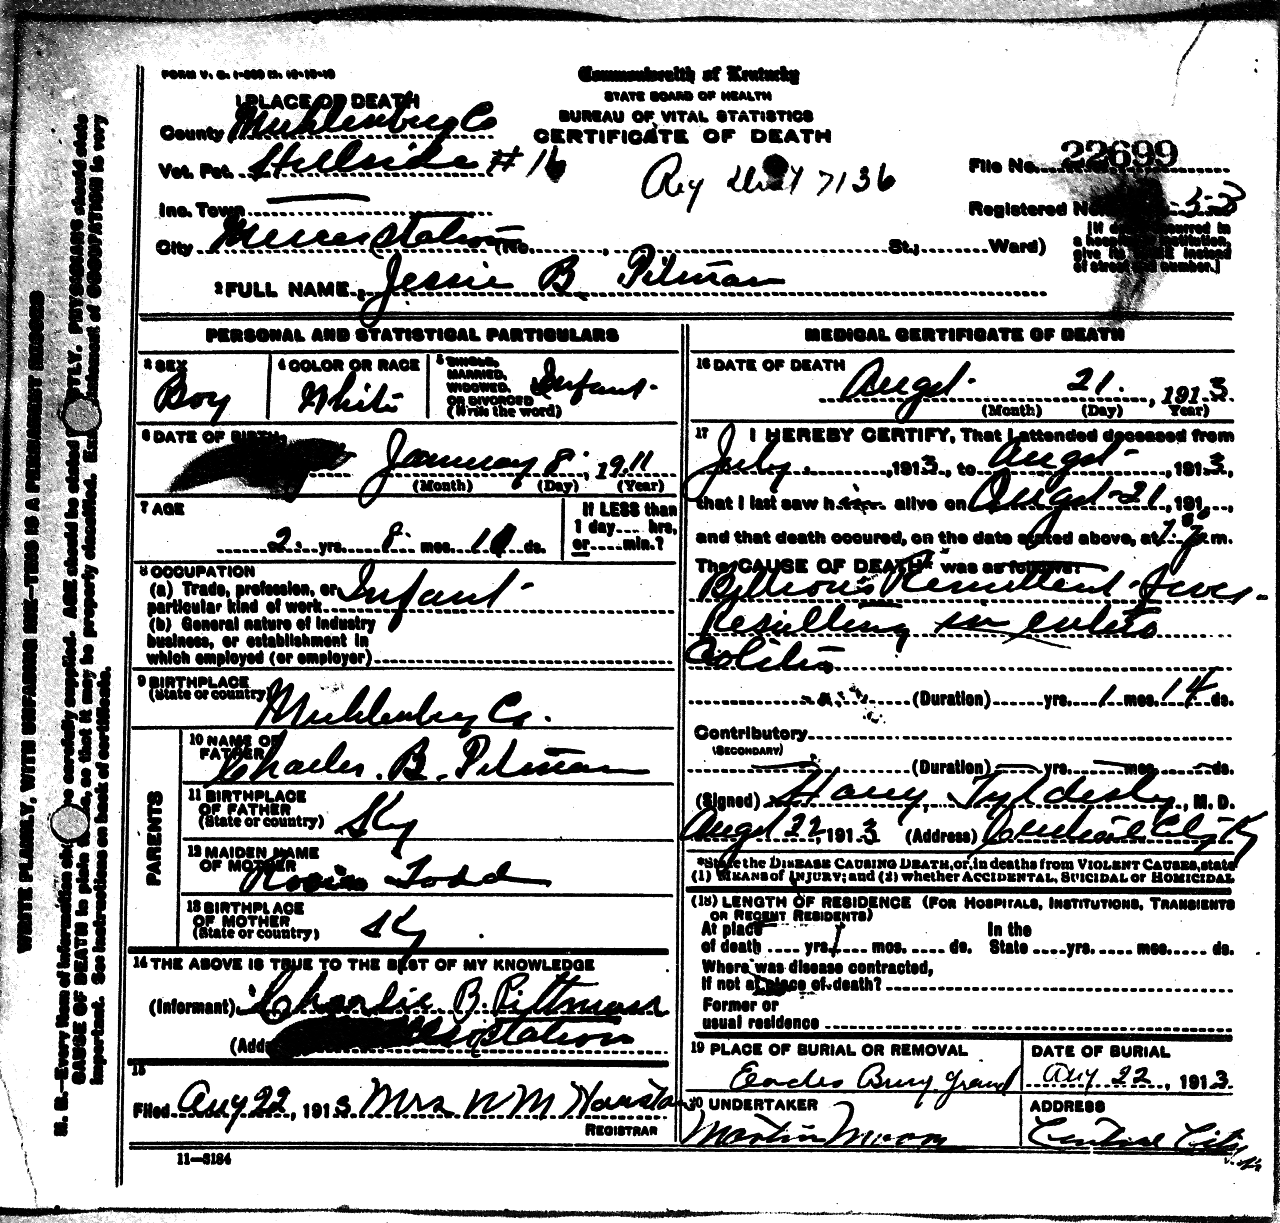 FORM V. S. 1-
Commonwealth of Kentucky
STATE BOARD OF HEALTH
BUREAU OF VITAL STATISTICS
CERTIFICATE OF DEATH
1 PLACE OF DEATH
County Muhlenberg Co
Vot. Pct. Hillside # 16
Reg Dist 7136
File No. 22699
Inc. Town
Registered No.
City Mercer station (No. , St.; Ward)
[If death occurred in a hospital or institution, give its NAME instead of street and number.]
2 FULL NAME Jessie B. Pitman
PERSONAL AND STATISTICAL PARTICULARS
3 SEX Boy
4 COLOR OR RACE White
5 SINGLE, MARRIED, WIDOWED, OR DIVORCED (Write the word) Infant
6 DATE OF BIRTH January 8, 1911
(Month) (Day) (Year)
7 AGE 2 yrs. 8 mos. ds.
If LESS than 1 day hrs. or min.?
8 OCCUPATION
(a) Trade, profession, or particular kind of work Infant
(b) General nature of industry business, or establishment in which employed (or employer)
9 BIRTHPLACE (State or country) Muhlenberg Co.
PARENTS
10 NAME OF FATHER Charles B. Pitman
11 BIRTHPLACE OF FATHER (State or country) Ky
12 MAIDEN NAME OF MOTHER Todd
13 BIRTHPLACE OF MOTHER (State or country) Ky
14 THE ABOVE IS TRUE TO THE BEST OF MY KNOWLEDGE
(Informant) Charlie B. Pittman
(Address) station
15
Filed Aug 22, 1913 Mrs W M
REGISTRAR
11—3184
MEDICAL CERTIFICATE OF DEATH
16 DATE OF DEATH Augst 21, 1913
(Month) (Day) Year)
17 I HEREBY CERTIFY, That I attended deceased from
July, 1913, to Augst, 1913,
that I last saw him alive on Augst 21, 191 ,
and that death occured, on the date stated above, at 7 m.
The CAUSE OF DEATH* was as follows:
Billious Remittent Fever
Resulting in entero
Colitis
(Duration) yrs. 1 mos. 14 ds.
Contributory
(SECONDARY)
(Duration) yrs. mos. ds.
(Signed) Harry Tyldesly, M. D.
Augst 22, 1913 (Address) Central City Ky
*State the DISEASE CAUSING DEATH, or, in deaths from VIOLENT CAUSES, state
(1) MEANS of INJURY; and (2) whether ACCIDENTAL, SUICIDAL or HOMICIDAL
(18) LENGTH OF RESIDENCE (FOR HOSPITALS, INSTITUTIONS, TRANSIENTS
OR RECENT RESIDENTS)
At place of death yrs. mos. ds. In the State yrs. mos. ds.
Where was disease contracted,
If not at place of death?
Former or
usual residence
19 PLACE OF BURIAL OR REMOVAL Eades Bury ground
DATE OF BURIAL Aug 22, 1913
20 UNDERTAKER Martin Moore
ADDRESS Central City
WRITE PLAINLY, WITH UNFADING INK—THIS IS A PERMANENT RECORD
N. B.—Every item of information should be carefully supplied. AGE should be stated EXACTLY. PHYSICIANS should state
CAUSE OF DEATH in plain terms, so that it may be properly classified. Exact statement of OCCUPATION is very
important. See instructions on back of certificate.